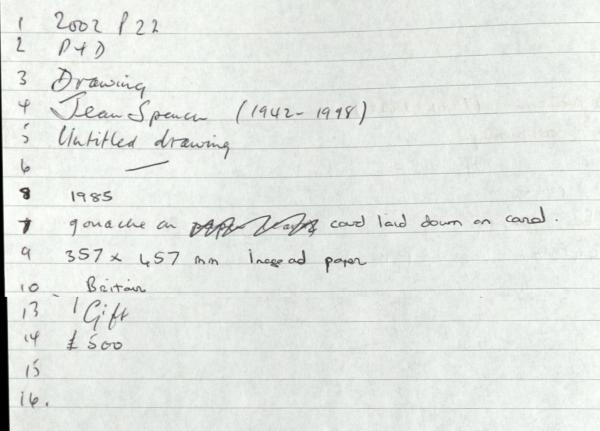 1 2002 P 22
2 P + D
3 Drawing
4 Jean Spencer (1942 - 1998)
5 Untitled drawing
6 —
8 1985
7 gouache on card laid down on card.
9 357 x 457 mm Image ad paper
10 Britain
13 1 Gift
14 £500
15
16.